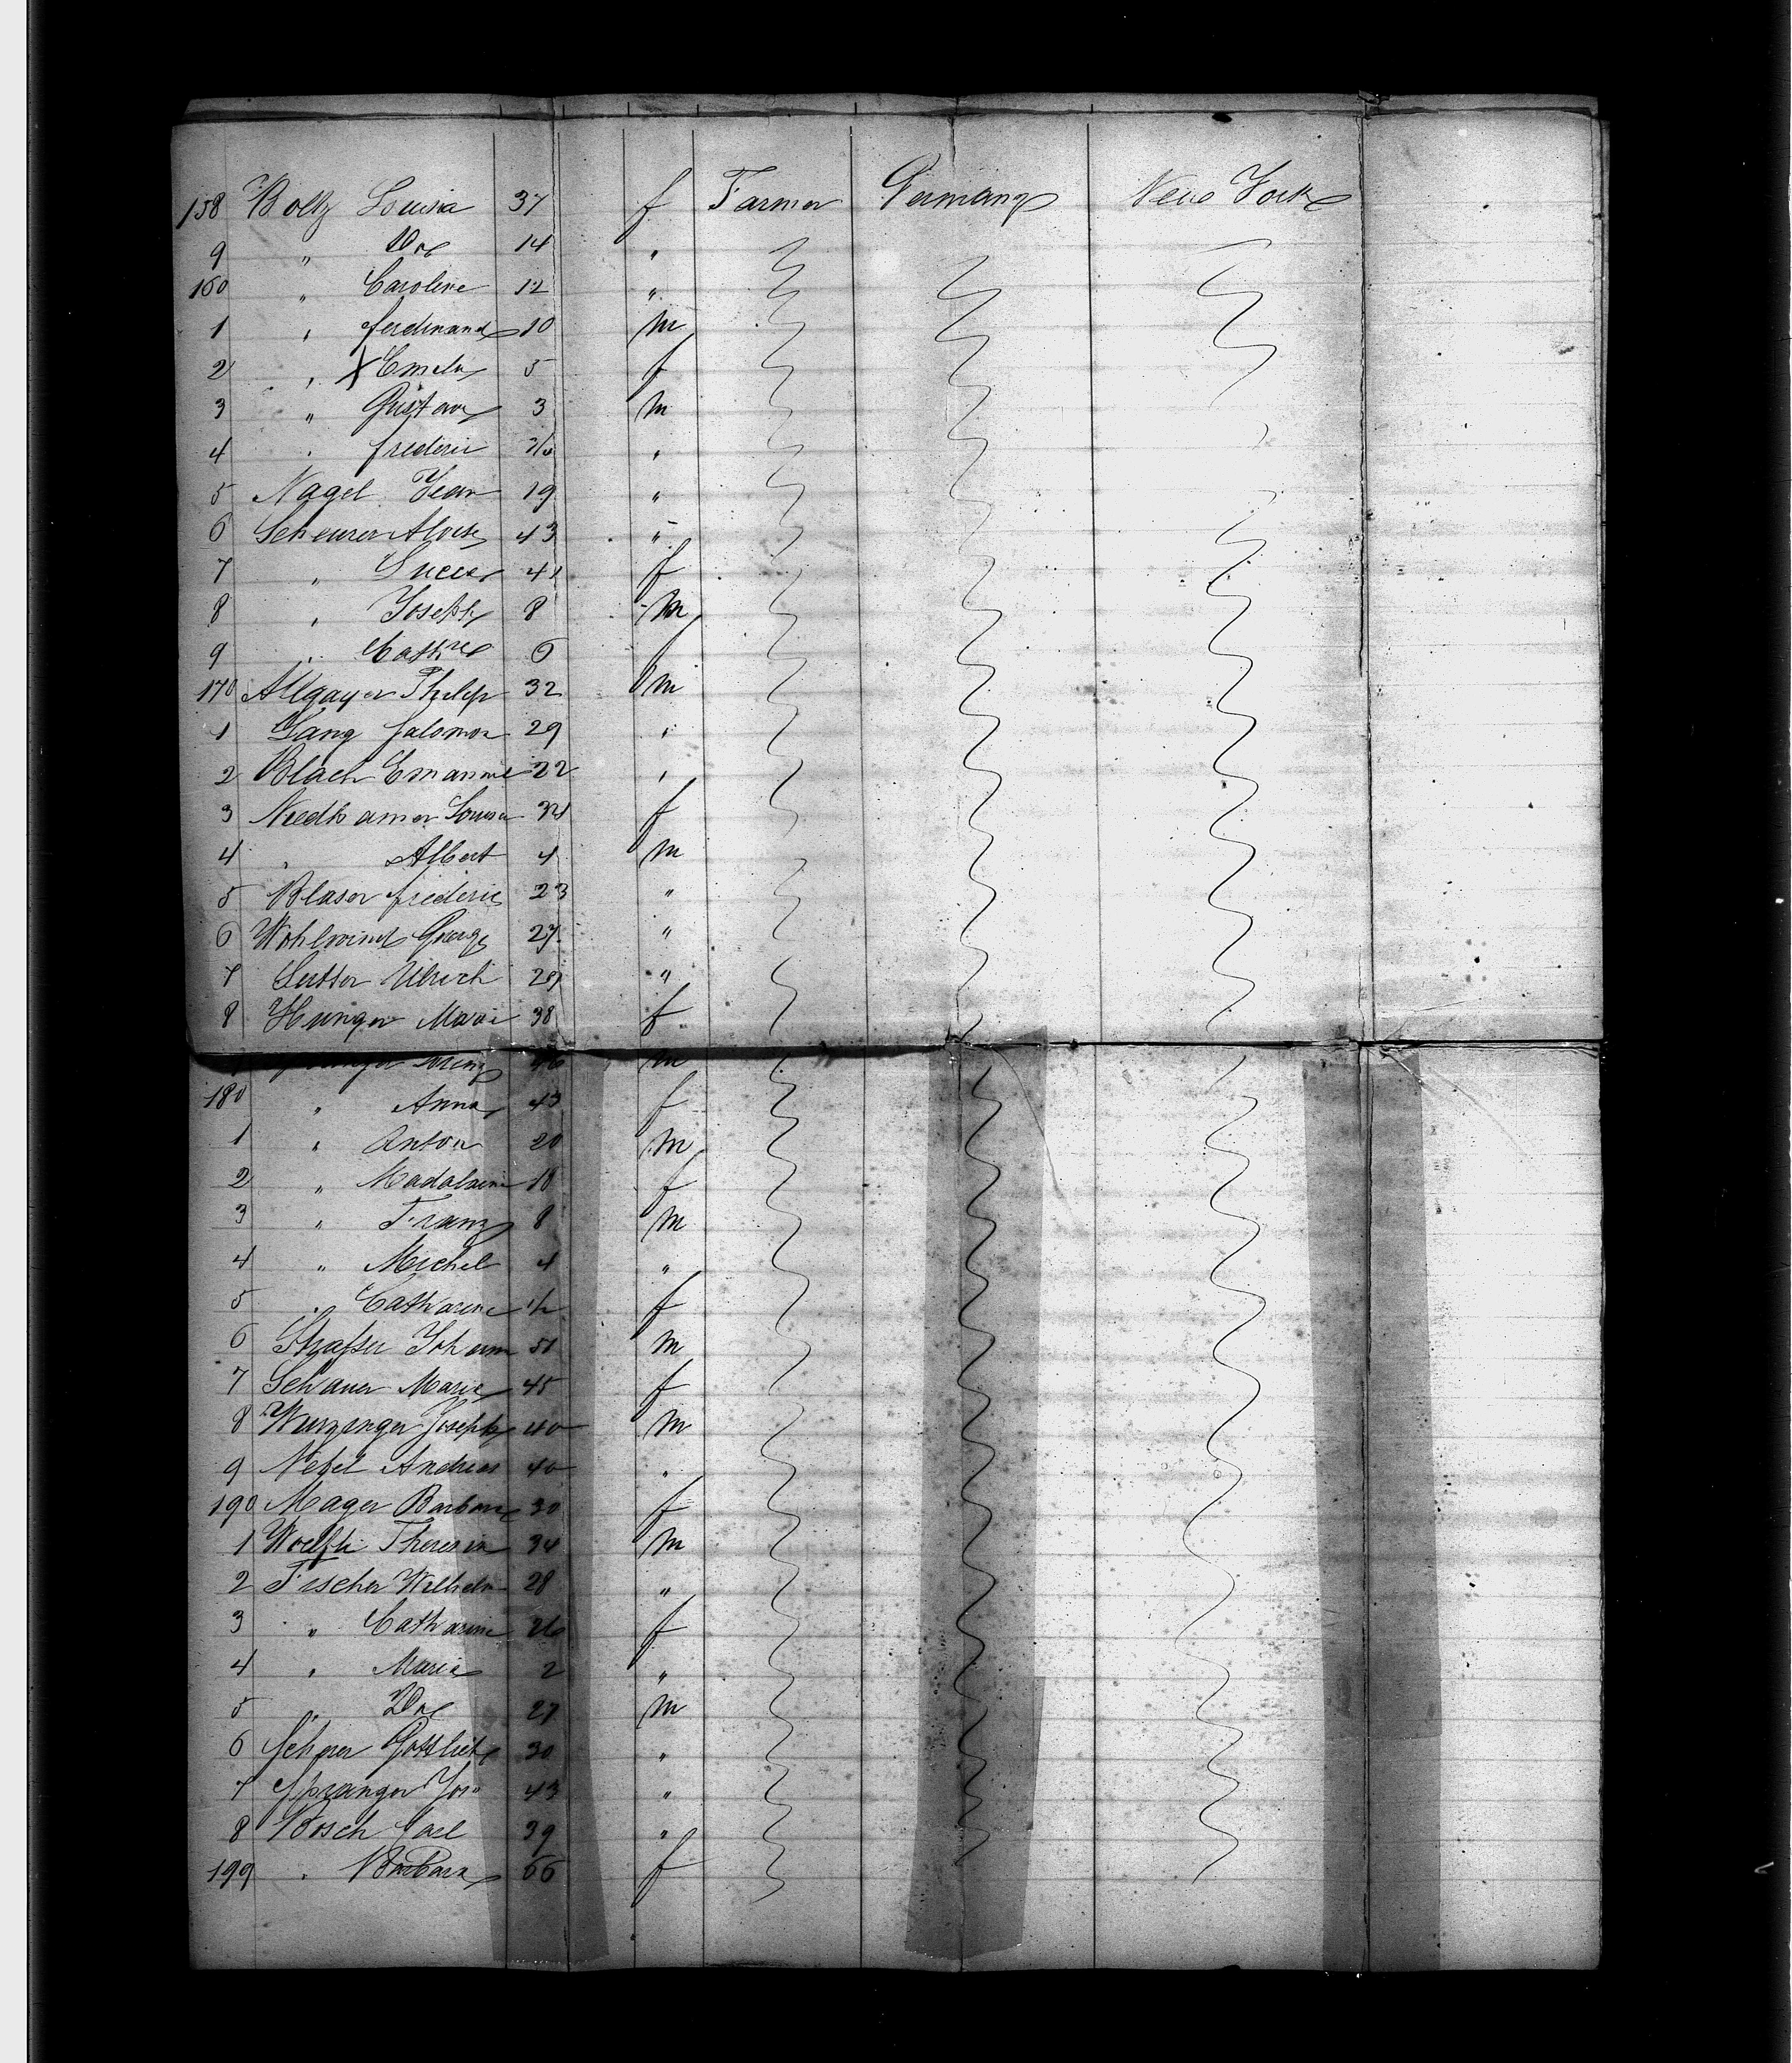 158 Boltz Louisa 37 f Farmer Germany New York
9 " Do 14 "
160 " Caroline 12 "
1 " ferdinand 10 m
2 " X Emelie 5 f
3 " Gustave 3 m
4 " frederic "
5 Nagel Jean 19 "
6 Scheurer Aloise 43 "
7 " 41 f
8 " Joseph 8 m
9 " Cathne 6 f
170 Allgayer Philip 32 m
1 Lang Salomon 29 "
2 Blach Emanuel 22 "
3 Louisa 34 f
4 " Albert 4 m
5 Blaser frederic 23 "
6 Wohlwind George 27 "
7 Sutter Ulrich 29 "
8 Hunger Marie 38 f
Lorenz 46 m
180 " Anna 43 f
1 " Anton 20 m
2 " Madalaine 18 f
3 " Franz 8 m
4 " Michel 4 "
5 " Catharine 1/2 f
6 Johann 51 m
7 Schauer Marie 45 f
8 Wurzinger Joseph 40 m
9 Nebel Andreas 40 "
190 Mager Barbara 30 f
1 Woelfli Theresia 34 m
2 Fischer Wilhelm 28 "
3 " Catharine 26 f
4 " Marie 2 "
5 " Do 27 m
6 Scherer Gottlieb 30 "
7 Spranger Jos 43 "
8 Bosch Carl 39 "
199 " Barbara 66 f